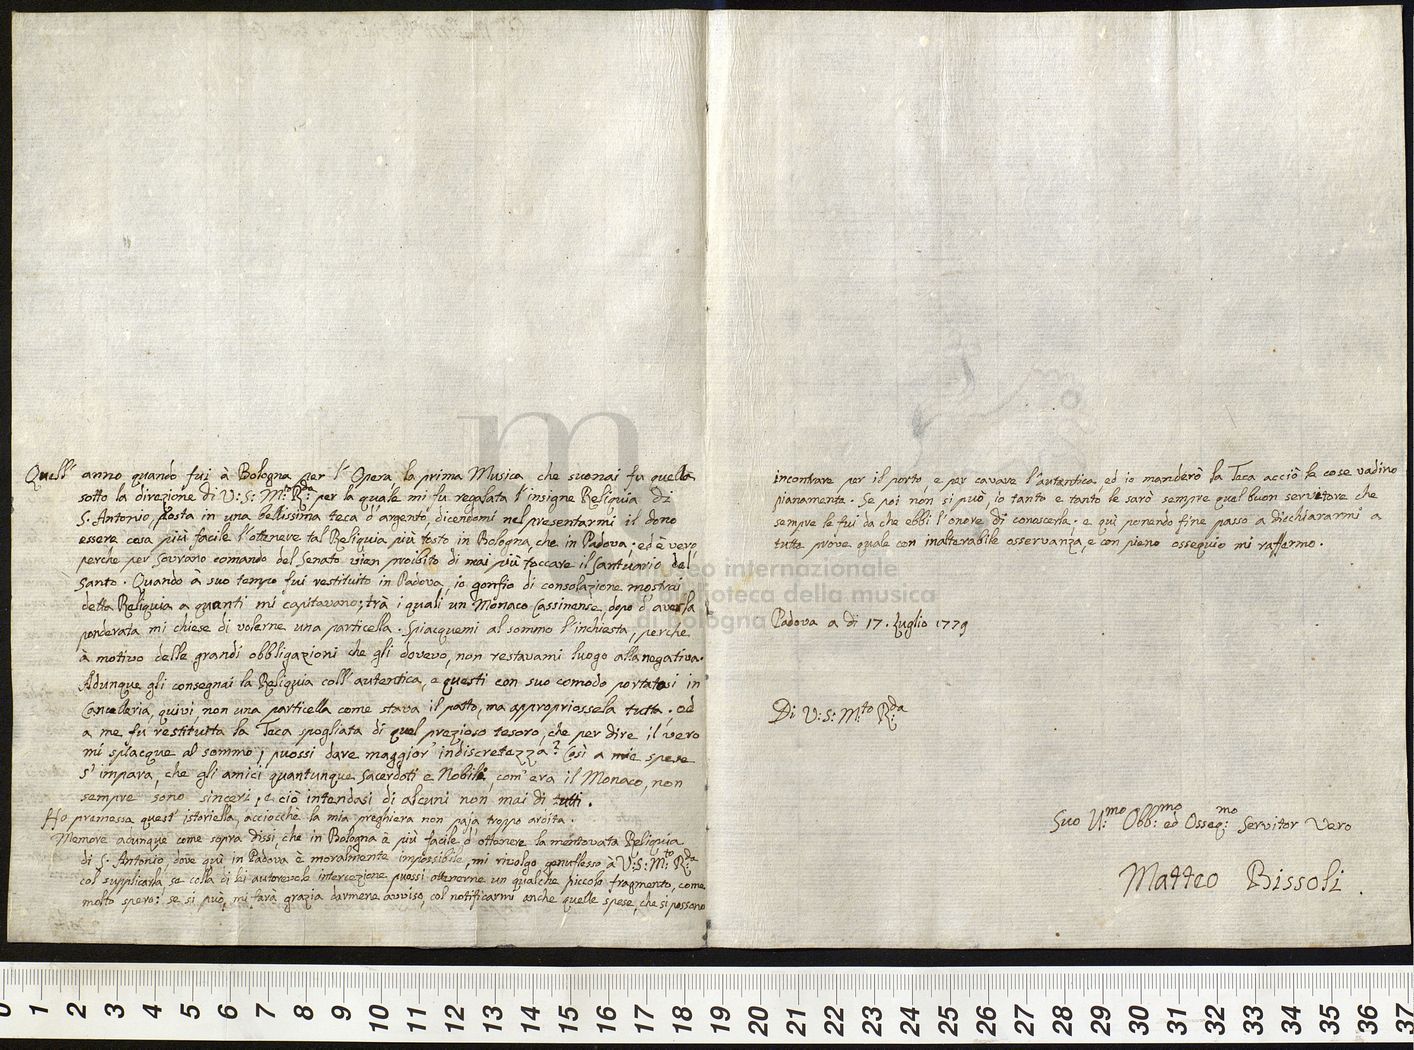 Quell' anno quando fui à Bologna per l' Opera la prima Musica che suonai fu quella
sotto la direzione di V: S: M:to R:da per la quale mi fu regalata l' insigne Reliquia di
S. Antonio, posta in una bellissima teca d' argento, dicendomi nel presentarmi il dono
essere cosa più facile l' ottenere tal Reliquia più tosto in Bologna che in Padova; ed è vero,
perche per Sovrano comando del Senato vien proibito di mai più toccare il Santuario del
Santo. Quando à suo tempo fui restituito in Padova, io gonfio di consolazione mostrai
della Reliquia a quanti mi capitavano; trà i quali un Monaco Cassinense, dopo d' averla
ponderata mi chiese di volerne una particella. Spiacquemi al sommo l' inchiesta, perche
à motivo delle grandi obbligazioni che gli dovevo, non restavami luogo alla negativa.
Adunque gli consegnai la Reliquia coll' autentica, e questi con suo comodo portatosi in
Cancelleria, quivi, non una particella come stava il patto, ma appropriossela tutta, ed
a me fu restituita la Teca spogliata di quel prezioso tesoro, che per dire il vero
mi spiacque al sommo; puossi dare maggior' indiscretezza? Così a mie spese
s' impara, che gli amici quantunque Sacerdoti e Nobili, com' era il Monaco, non
sempre sono sinceri, e ciò intendasi di alcuni non mai di tutti.
Ho premessa quest' istoriella, acciocchè la mia preghiera non paja troppo ardita.
Memore adunque come sopra dissi, che in Bologna è più facile d' ottenere la mentovata Reliquia
di S. Antonio, dove quì in Padova è moralmente impossibile, mi rivolgo genuflesso à V: S: M:to R:da
col supplicarla, se colla di lei autorevole intercezione puossi ottenerne un qualche piccolo fragmento, come
molto spero: se si può, mi farà grazia darmene avviso, col notificarmi anche quelle spese, che si possono
incontrare per il porto, e per cavare l' autentica, ed io manderò la Teca acciò le cose vadino
pianamente. Se poi non si può, io tanto e tanto le sarò sempre quel buon servitore che
sempre le fui da che ebbi l' onore di conoscerla. e quì ponendo fine passo a dicchiararmi a
tutte prove quale con inalterabile osservanza, e con pieno ossequio mi raffermo.
Padova a dì 17. Luglio 1779
Di V: S: M:to R:da
Suo U:mo Obb:mo ed Osseq:mo Servitor Vero
Matteo Bissoli.
m
museo internazionale
e biblioteca della musica
di bologna
0 1 2 3 4 5 6 7 8 9 10 11 12 13 14 15 16 17 18 19 20 21 22 23 24 25 26 27 28 29 30 31 32 33 34 35 36 37